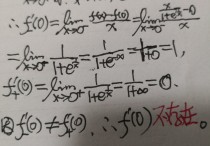 ∴f'₋(0)=lim_{x→0⁻} (f(x)-f(0))/x = lim_{x→0⁻} (x/(1+e^{1/x})-0)/x
=lim_{x→0⁻} 1/(1+e^{1/x}) = 1/(1+e^{-∞}) = 1/(1+0) = 1,
f'₊(0)=lim_{x→0⁺} 1/(1+e^{1/x}) = 1/(1+∞) = 0.
f'₋(0)≠f'₊(0), ∴f'(0)不存在。